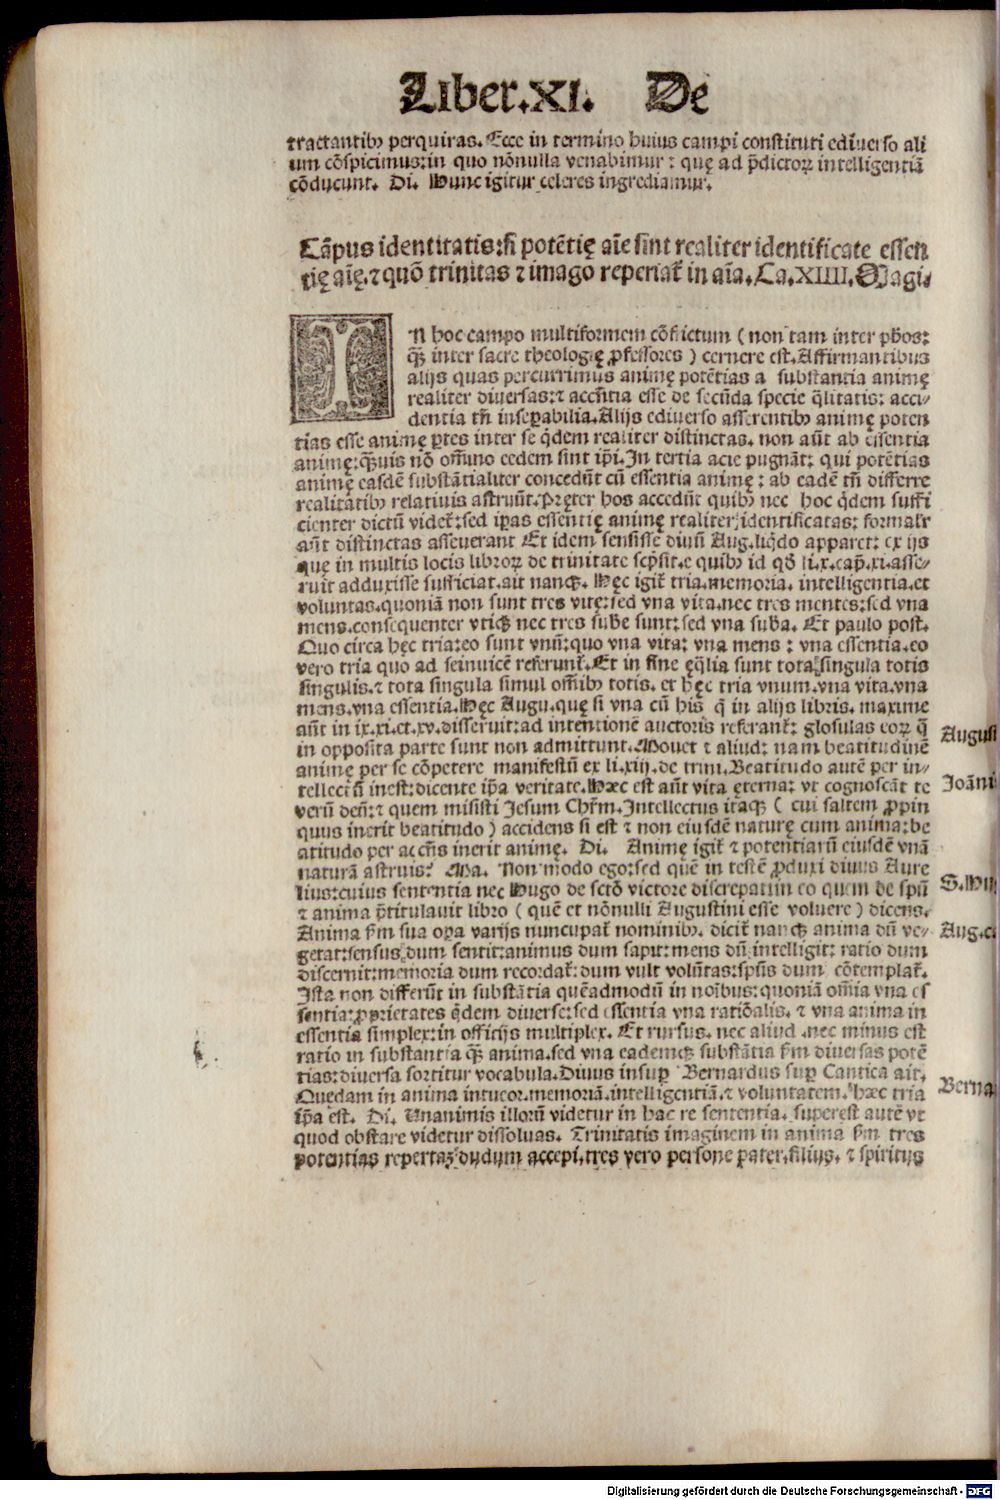 Liber.XI. De
tractantibꝰ perquiras. Ecce in termino huius campi constituti ediuerso ali
um cōspicimus: in quo nōnulla venabimur: quę ad p̄dictoꝝ intelligentiā
cōducunt. Di. Hunc igitur celeres ingrediamur.
Cāpus identitatis: si potētię aīe sint realiter identificate essen
tię aīę. ⁊ quō trinitas ⁊ imago reperiat̄ in aīa. Ca. XIIII. Magi.
IN hoc campo multiformem cōflictum (non tam inter phōs:
q̄ꝫ inter sacre theologię ꝓfessores) cernere est. Affirmantibus
alijs quas percurrimus animę potētias a substantia animę
realiter diuersas: ⁊ accn̄tia esse de secūda specie q̄litatis: acci-
dentia tn̄ inseꝑabilia. Alijs ediuerso asserentibꝰ animę poten
tias esse animę ꝑtes inter se q̇dem realiter distinctas. non aūt ab essentia
animę: q̄ꝫuis nō om̄ino eedem sint ip̄i. In tertia acie pugnāt: qui potētias
animę easdē substātialiter concedūt cū essentia animę: ab eadē tn̄ differre
realitatibꝰ relatiuis astruūt. Pręter hos accedūt quibꝰ nec hoc q̇dem suffi
cienter dictū videt̄: sed ip̄as essentię animę realiter identificatas: formalr̄
aūt distinctas asseuerant Et idem sensisse diuū Aug. liq̇do apparet: ex ijs
quę in multis locis libroꝝ de trinitate scp̄sit. e quibꝰ id qd̄ li. x. cap̄. xi. asse-
ruit adduxisse sufficiat. ait nanqꝫ. Hęc igit̄ tria. memoria. intelligentia. et
voluntas. quoniā non sunt tres vitę: sed vna vita. nec tres mentes: sed vna
mens. consequenter vtiqꝫ nec tres sub̄e sunt: sed vna sub̄a. Et paulo post.
Quo circa hęc tria: eo sunt vnū: quo vna vita: vna mens: vna essentia. eo
vero tria quo ad seinuicē referunt̄. Et in fine ęq̄lia sunt tota singula totis
singulis. ⁊ tota singula simul om̄ibꝰ totis. et hęc tria vnum. vna vita. vna
mens. vna essentia. Hęc Augu. quę si vna cū his q̄ in alijs libris. maxime
aūt in ix. xi. et. xv. disseruit: ad intentionē auctoris referant̄: glosulas eoꝝ q̄
in opposita parte sunt non admittunt. Mouet ⁊ aliud: nam beatitudinē
animę per se cōpetere manifestū ex li. xiij. de trini. Beatitudo autē per in-
tellectū inest: dicente ip̄a veritate. Hæc est aūt vita ęterna: vt cognoscāt te
verū deū: ⁊ quem misisti Jesum Chr̄m. Intellectus itaqꝫ (cui saltem ꝓpin
quus inerit beatitudo) accidens si est ⁊ non eiusdē naturę cum anima: be
atitudo per accn̄s inerit animę. Di. Animę igit̄ ⁊ potentiarū eiusdē vnā
naturā astruis? Ma. Non modo ego: sed quē in testē ꝓduxi diuus Aure
lius: cuius sententia nec Hugo de sctō victore discrepat: in eo quem de spū
⁊ anima p̄titulauit libro (quē et nōnulli Augustini esse voluere) dicens.
Anima ẜm sua oꝑa varijs nuncupat̄ nominibꝰ. dicit̄ nanqꝫ anima dū ve-
getat: sensus dum sentit: animus dum sapit: mens dū intelligit: ratio dum
discernit: memoria dum recordat̄: dum vult volūtas: spūs dum cōtemplat̄.
Ista non differūt in substātia quēadmodū in noībus: quoniā om̄ia vna es
sentia: ꝓprietates q̇dem diuerse: sed essentia vna ratiōalis. ⁊ vna anima in
essentia simplex: in officijs multiplex. Et rursus. nec aliud. nec minus est
ratio in substantia q̄ꝫ anima. sed vna eademqꝫ substātia ẜm diuersas potē
tias: diuersa sortitur vocabula. Diuus insuꝑ Bernardus suꝑ Cantica ait.
Quędam in anima intueor. memoriā. intelligentiā. ⁊ voluntatem. hæc tria
ip̄a est. Di. Vnanimis illorū videtur in hac re sententia. superest autē vt
quod obstare videtur dissoluas. Trinitatis imaginem in anima ẜm tres
potentias repertaꝫ dudum accepi. tres vero persone pater. filius. ⁊ spiritus
August
Joāni
S. Hu
Aug. c
Berna
Digitalisierung gefördert durch die Deutsche Forschungsgemeinschaft - DFG